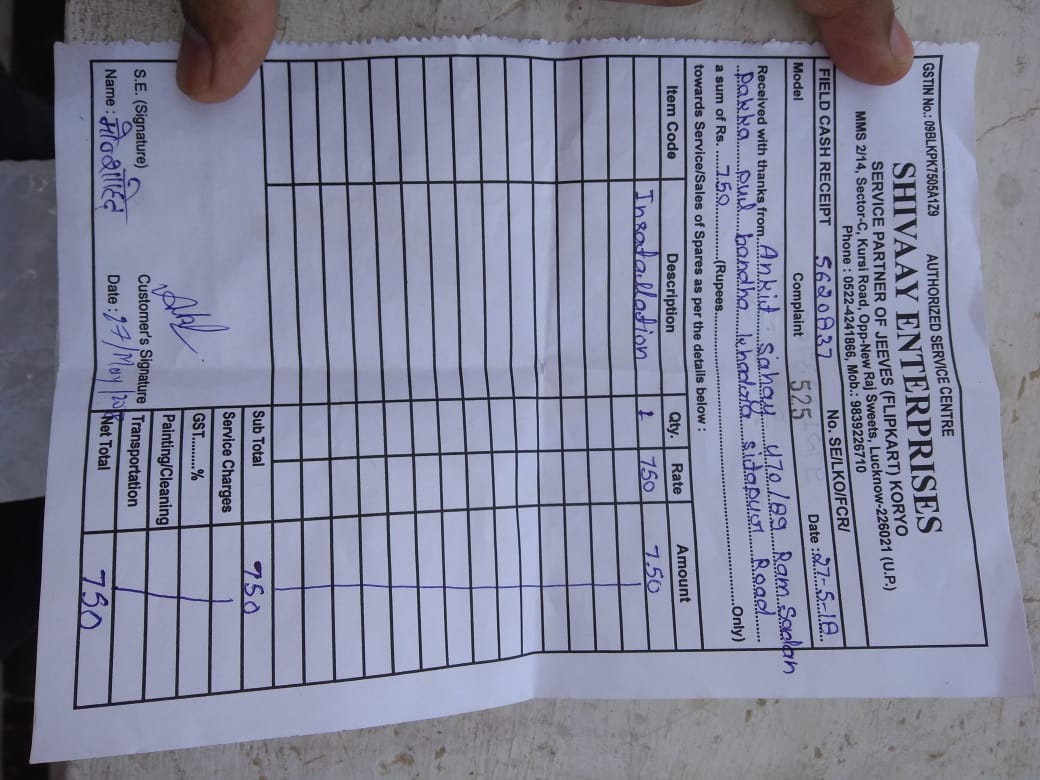 GSTIN No.: 09BLKPK7505A1Z9 AUTHORIZED SERVICE CENTRE
SHIVAAY ENTERPRISES
SERVICE PARTNER OF JEEVES (FLIPKART) KORYO
MMS 2/14, Sector-C, Kursi Road, Opp-New Raj Sweets, Lucknow-226021 (U.P.)
Phone : 0522-4241866, Mob.: 9839226710
FIELD CASH RECEIPT 5620837 No. SE/LKO/FCR/
Model Complaint 525 Date : 27-5-18
Received with thanks from Ankit Sahay 470/89 Ram Sadan
Pakka pul bandha khadra sitapur Road
a sum of Rs. 750 (Rupees Only)
towards Service/Sales of Spares as per the details below :
Item Code Description Qty. Rate Amount
Insatallation 1 750 750
Sub Total 750
Service Charges
GST.........%
Painting/Cleaning
Transportation
Net Total 750
S.E. (Signature) Customer's Signature
Name : मो० शाहिद Date : 27/May/2018